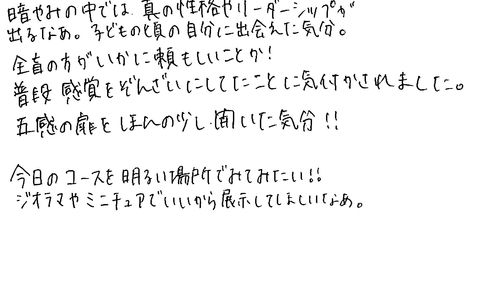 暗やみの中では、真の性格やリーダーシップが
出るなあ。子どもの頃の自分に出会えた気分。
全盲の方がいかに頼もしいことか!
普段 感覚をぞんざいにしてたことに気付かされました。
五感の扉をほんの少し開いた気分!!
今日のコースを明るい場所でみてみたい!!
ジオラマやミニチュアでいいから展示してほしいなあ。